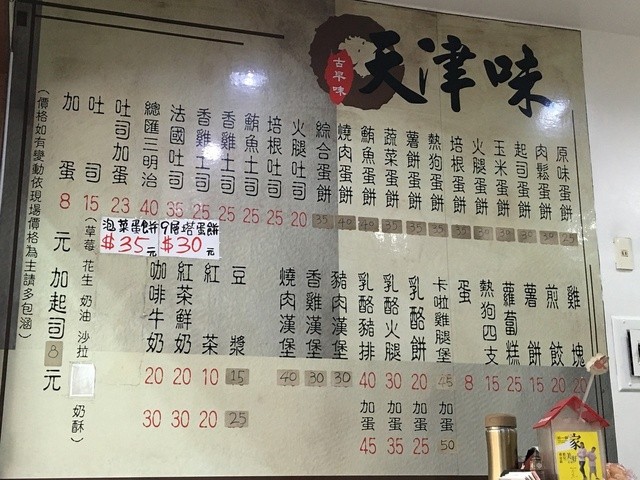 天津味
古早味
原味蛋餅 25
肉鬆蛋餅 30
起司蛋餅 30
玉米蛋餅 30
火腿蛋餅 30
培根蛋餅 35
熱狗蛋餅 35
薯餅蛋餅 35
蔬菜蛋餅 35
鮪魚蛋餅 40
燒肉蛋餅 40
綜合蛋餅 35
火腿吐司 20
培根吐司 25
鮪魚土司 25
香雞土司 25
香雞吐司 25
法國吐司 35
總匯三明治 40
吐司加蛋 23
吐司 15 (草莓 花生 奶油 沙拉 奶酥)
加蛋 8元 加起司 8元
(價格如有變動依現場價格為主請多包涵)
泡菜蛋餅 $35元
9層塔蛋餅 $30元
雞塊 20
煎餃 20
薯餅 15
蘿蔔糕 25
熱狗四支 15
蛋 8
卡啦雞腿堡 45 加蛋 50
乳酪餅 20 加蛋 25
乳酪火腿 30 加蛋 35
乳酪豬排 40 加蛋 45
豬肉漢堡 30
香雞漢堡 30
燒肉漢堡 40
豆漿 15 25
紅茶 10 20
紅茶鮮奶 20 30
咖啡牛奶 20 30
家